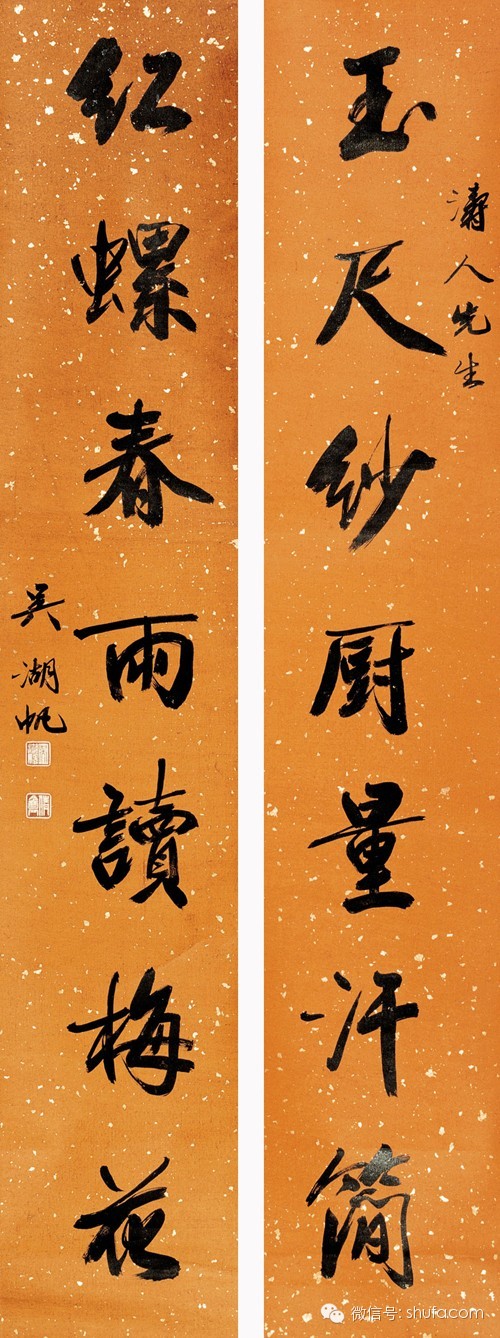 玉尺紗厨量汗簡
濤人先生
紅螺春雨讀梅花
吴湖帆
微信号: shufa.com